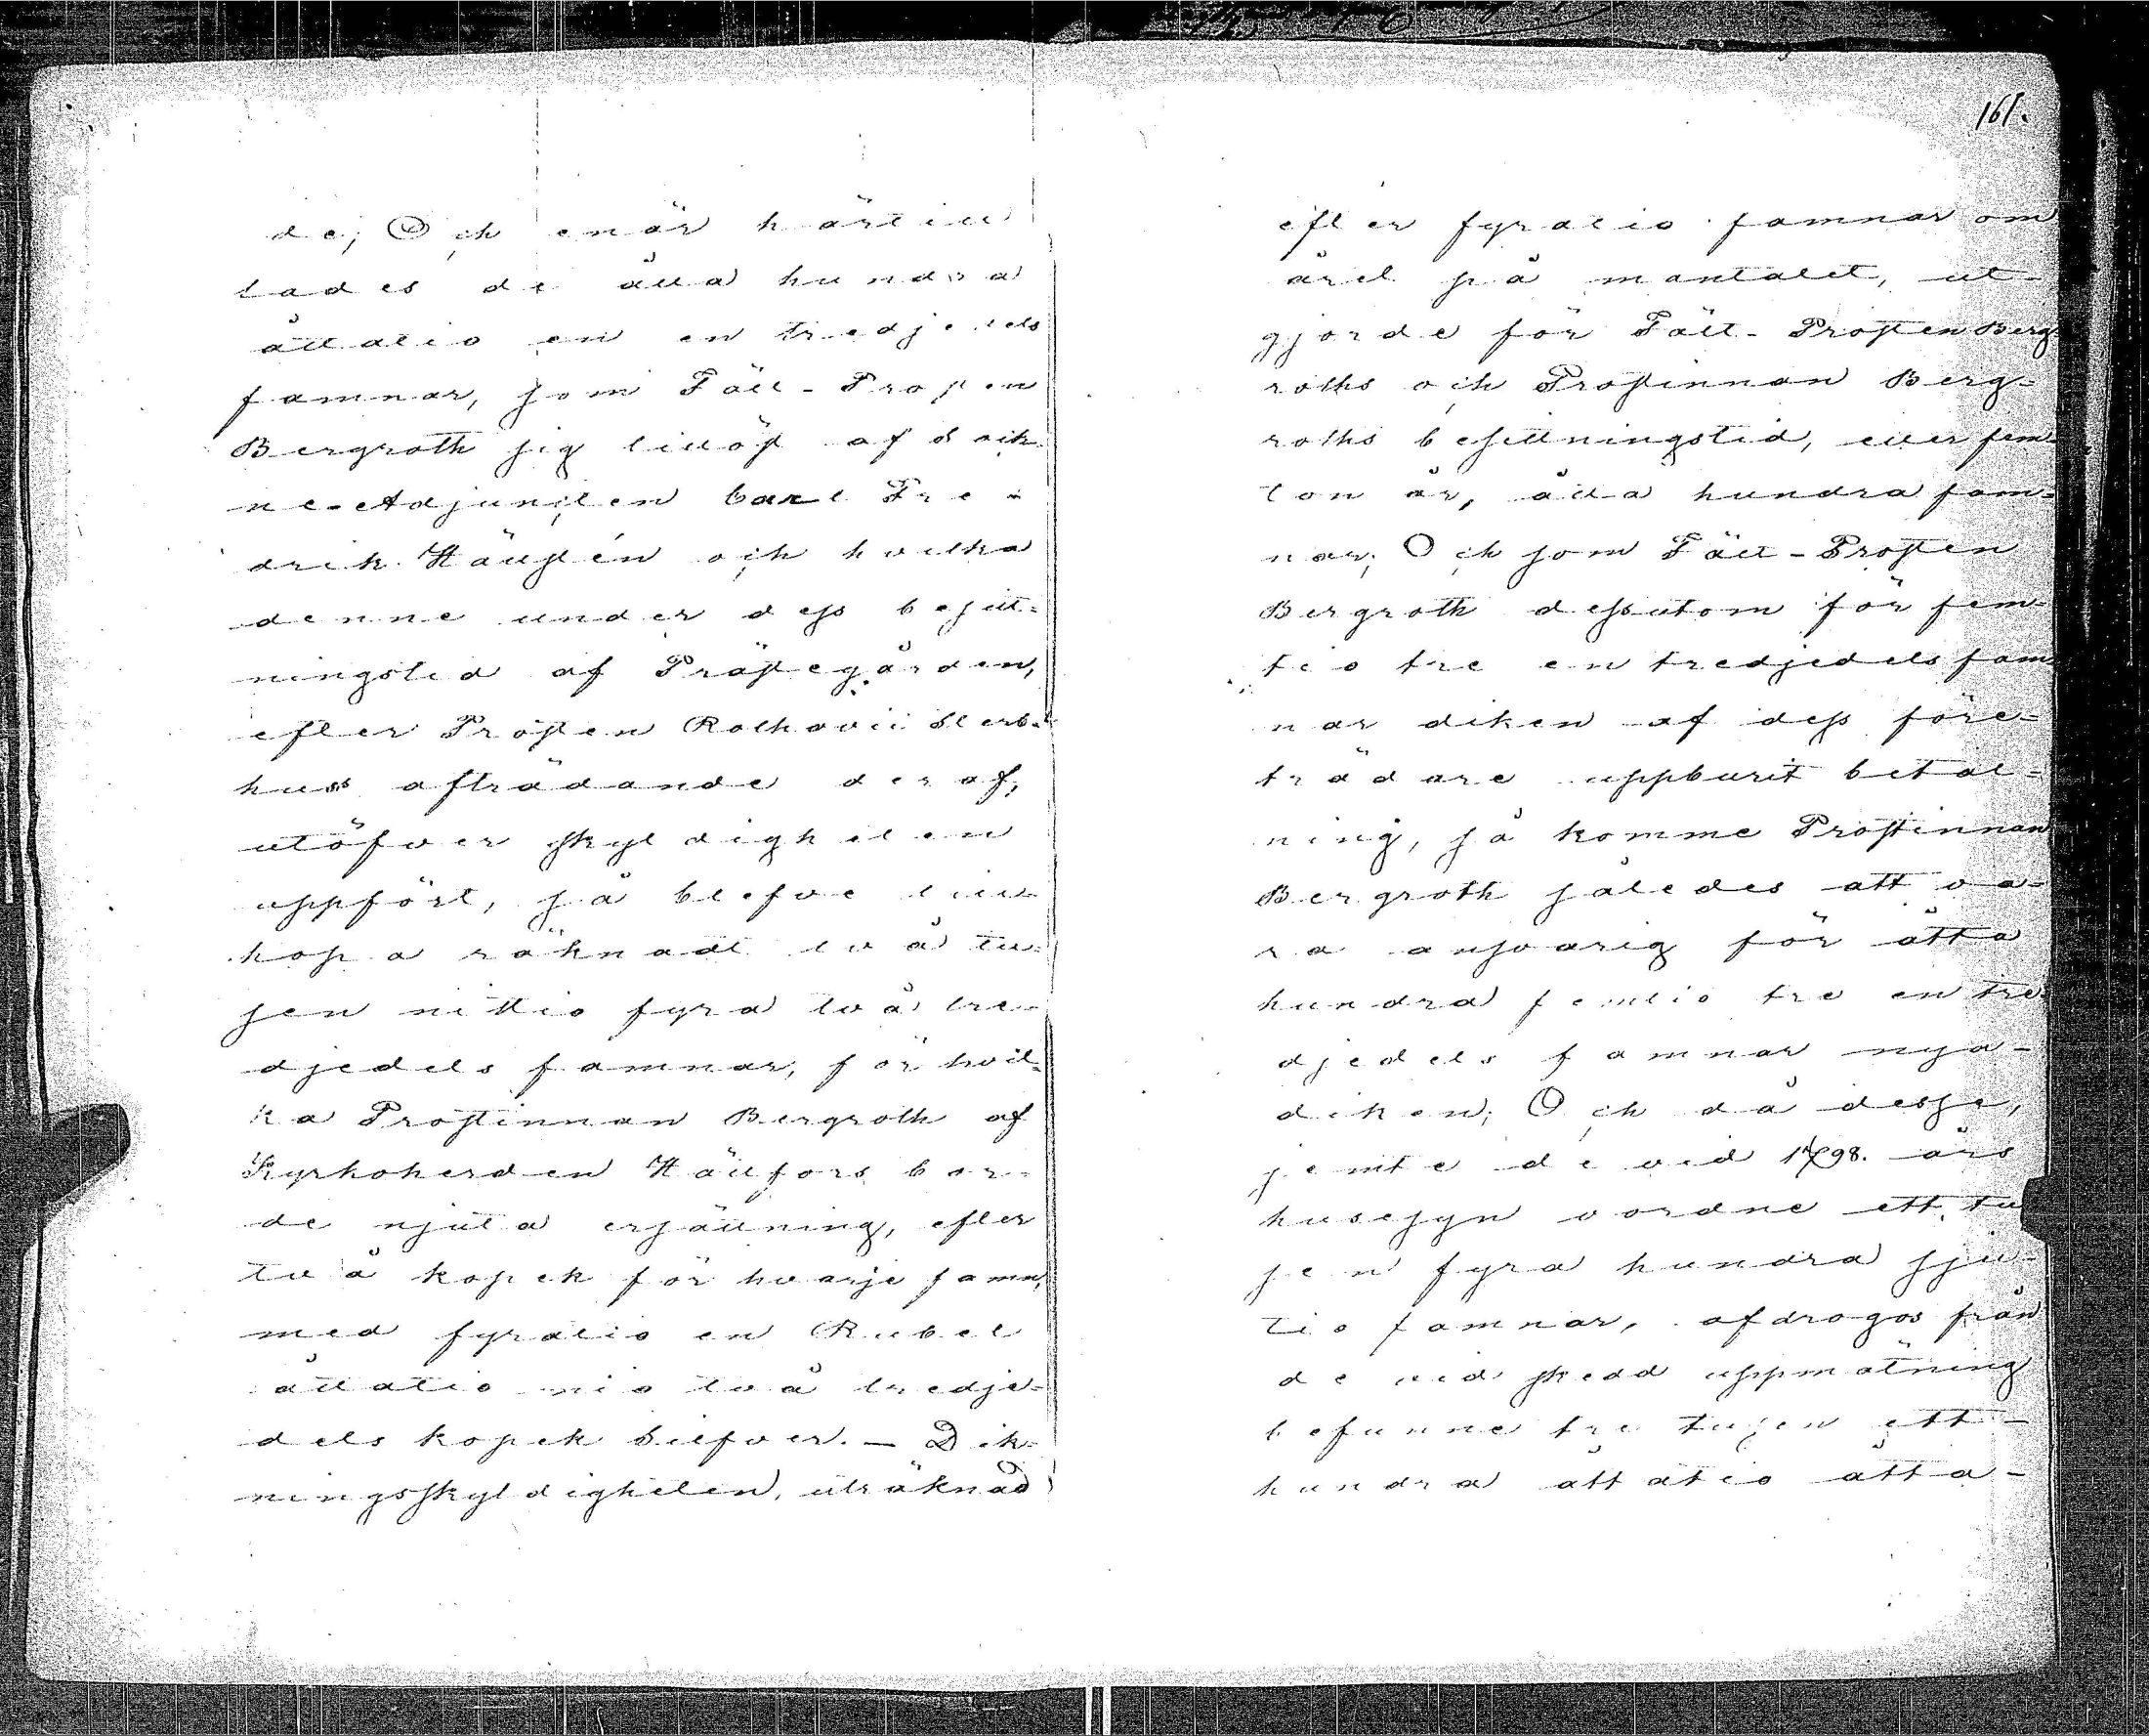 de; Och enär härtill
lades de åtta hundra
åttatio en en tredjedels
famnar, som Fält-Prosten
Bergroth sig tillöst af Sock-
ne-Adjuncten Carl Fre-
drik Hällsten och hvilka
denne under dess besitt-
ningstid af Prästegården,
efter Prosten Rothovii Sterb-
hus afträdande deraf,
utöfver skyldigheten
uppfört, så blefve till-
hopa räknadt två tu-
sen nittio fyra två tre-
djedels famnar, för hvil-
ka Prostinnan Bergroth af
Kyrkoherden Hällfors bor-
de njuta ersättning, efter
två kopek för hvarje famn,
med fyratio en Rubel
åttatio nio två tredje-
dels kopek Silfver. — Dik-
ningsskyldigheten, uträknad
161.
efter fyratio famnar om
året på mantalet, ut-
gjorde för Fält-Prosten Berg-
roths och Prostinnan Berg-
roths besittningstid, eller fem-
ton år, åtta hundra fam-
nar; Och som Fält-Prosten
Bergroth dessutom för fem-
tio tre en tredjedels fam-
nar diken af dess före-
trädare uppburit betal-
ning, så komme Prostinnan
Bergroth således att va-
ra ansvarig för åtta
hundra femtio tre en tre-
djedels famnar nya-
diken; Och då desse,
jemte de vid 1798. års
husesyn vordne ett tu
sen fyra hundra sju-
tio famnar, afdrogos från
de vid skedd uppmätning
befunne tre tusen ett-
hundra åttatio åtta-